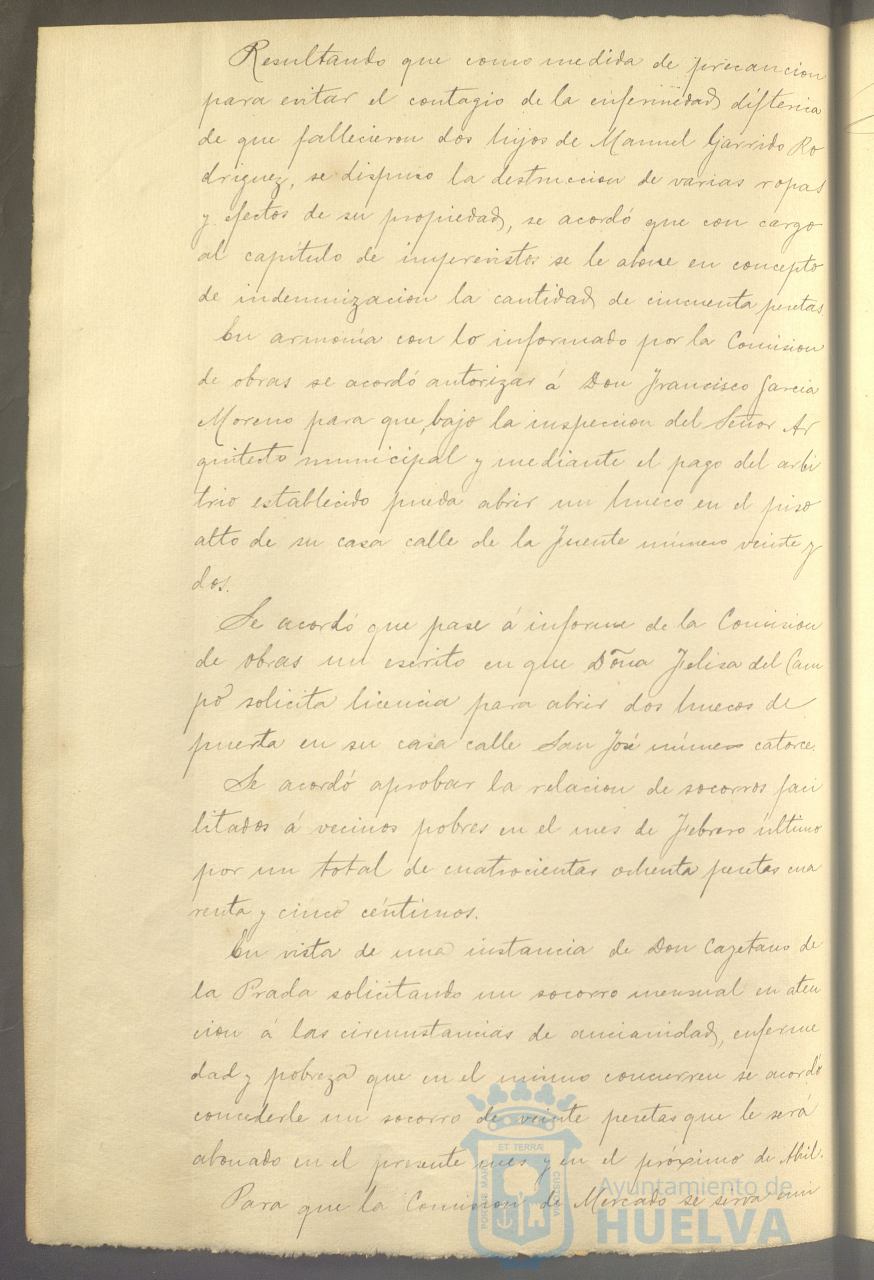 Resultando que como medida de precaucion
para evitar el contagio de la enfermedad diftérica
de que fallecieron dos hijos de Manuel Garrido Ro
driguez, se dispuso la destruccion de varias ropas
y efectos de su propiedad, se acordó que con cargo
al capitulo de imprevistos se le abone en concepto
de indemnizacion la cantidad de cincuenta pesetas
En armonía con lo informado por la Comision
de obras se acordó autorizar á Don Francisco Garcia
Moreno para que, bajo la inspeccion del Señor Ar
quitecto municipal y mediante el pago del arbi
trio establecido pueda abrir un hueco en el piso
alto de su casa calle de la Fuente número veinte y
dos.
Se acordó que pase á informe de la Comision
de obras un escrito en que Doña Felisa del Cam
po solicita licencia para abrir dos huecos de
puerta en su casa calle San José número catorce.
Se acordó aprobar la relacion de socorros faci
litados á vecinos pobres en el mes de Febrero último
por un total de cuatrocientas ochenta pesetas cua
renta y cinco céntimos.
En vista de una instancia de Don Cayetano de
la Prada solicitando un socorro mensual en aten
cion á las circunstancias de ancianidad, enferme
dad y pobreza que en el mismo concurren se acordó
concederle un socorro de veinte pesetas que le será
abonado en el presente mes y en el próximo de Abril.
Para que la Comision de Mercado se sirva emi
PORTUS MARIS ET TERRÆ CUSTODIA
Ayuntamiento de
HUELVA